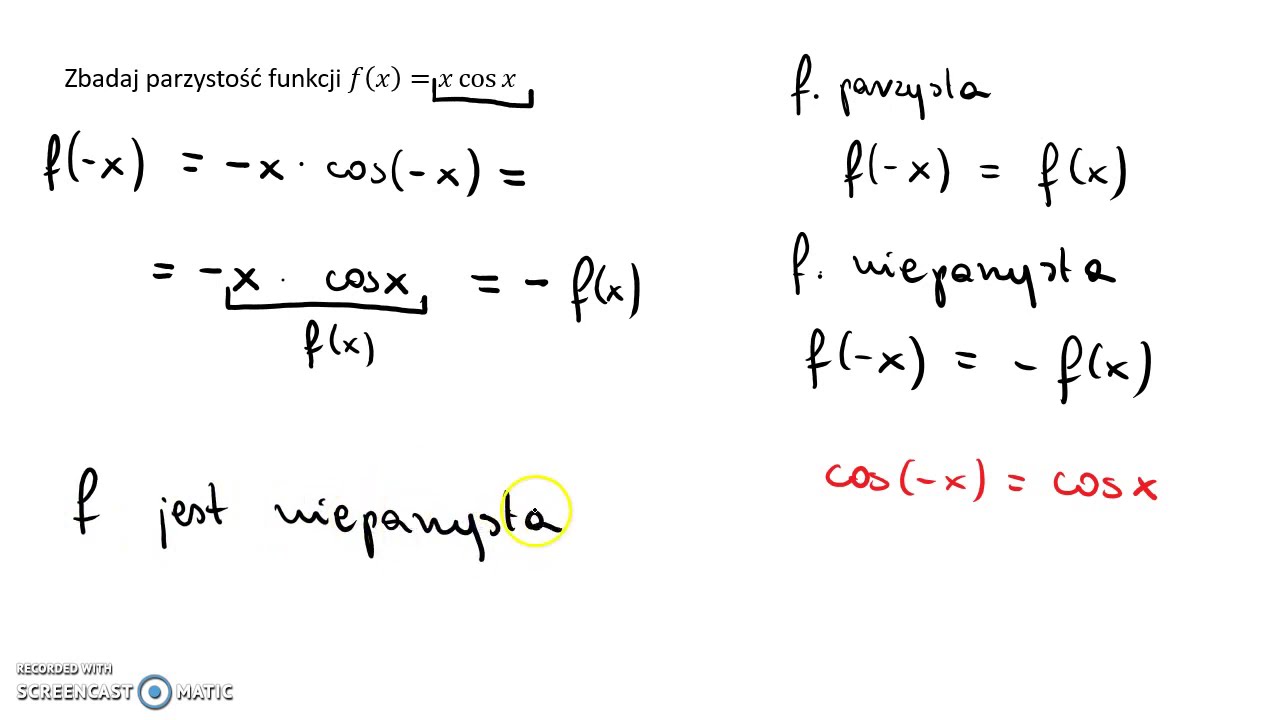 Zbadaj parzystość funkcji f(x) = x cos x
f(-x) = -x · cos(-x) =
= -x · cosx = - f(x)
f(x)
f jest nieparzysta
f. parzysta
f(-x) = f(x)
f. nieparzysta
f(-x) = - f(x)
cos(-x) = cosx
RECORDED WITH
SCREENCAST MATIC